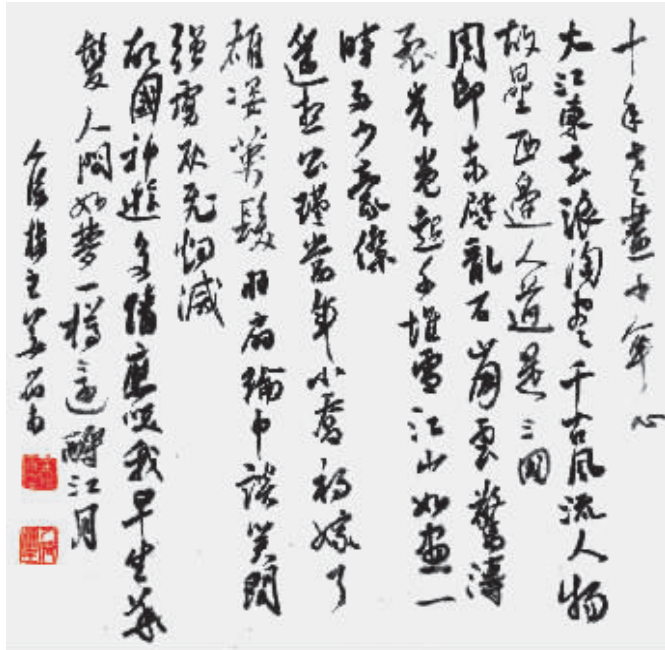 十年老盡少年心
大江東去浪淘盡千古風流人物
故壘西邊人道是三國
周郎赤壁亂石崩雲驚濤
裂岸卷起千堆雪江山如畫一
時多少豪傑
遙想公瑾當年小喬初嫁了
雄姿英發羽扇綸巾談笑間
强虜灰飛烟滅
故國神遊多情應笑我早生華
髮人間如夢一樽還酹江月